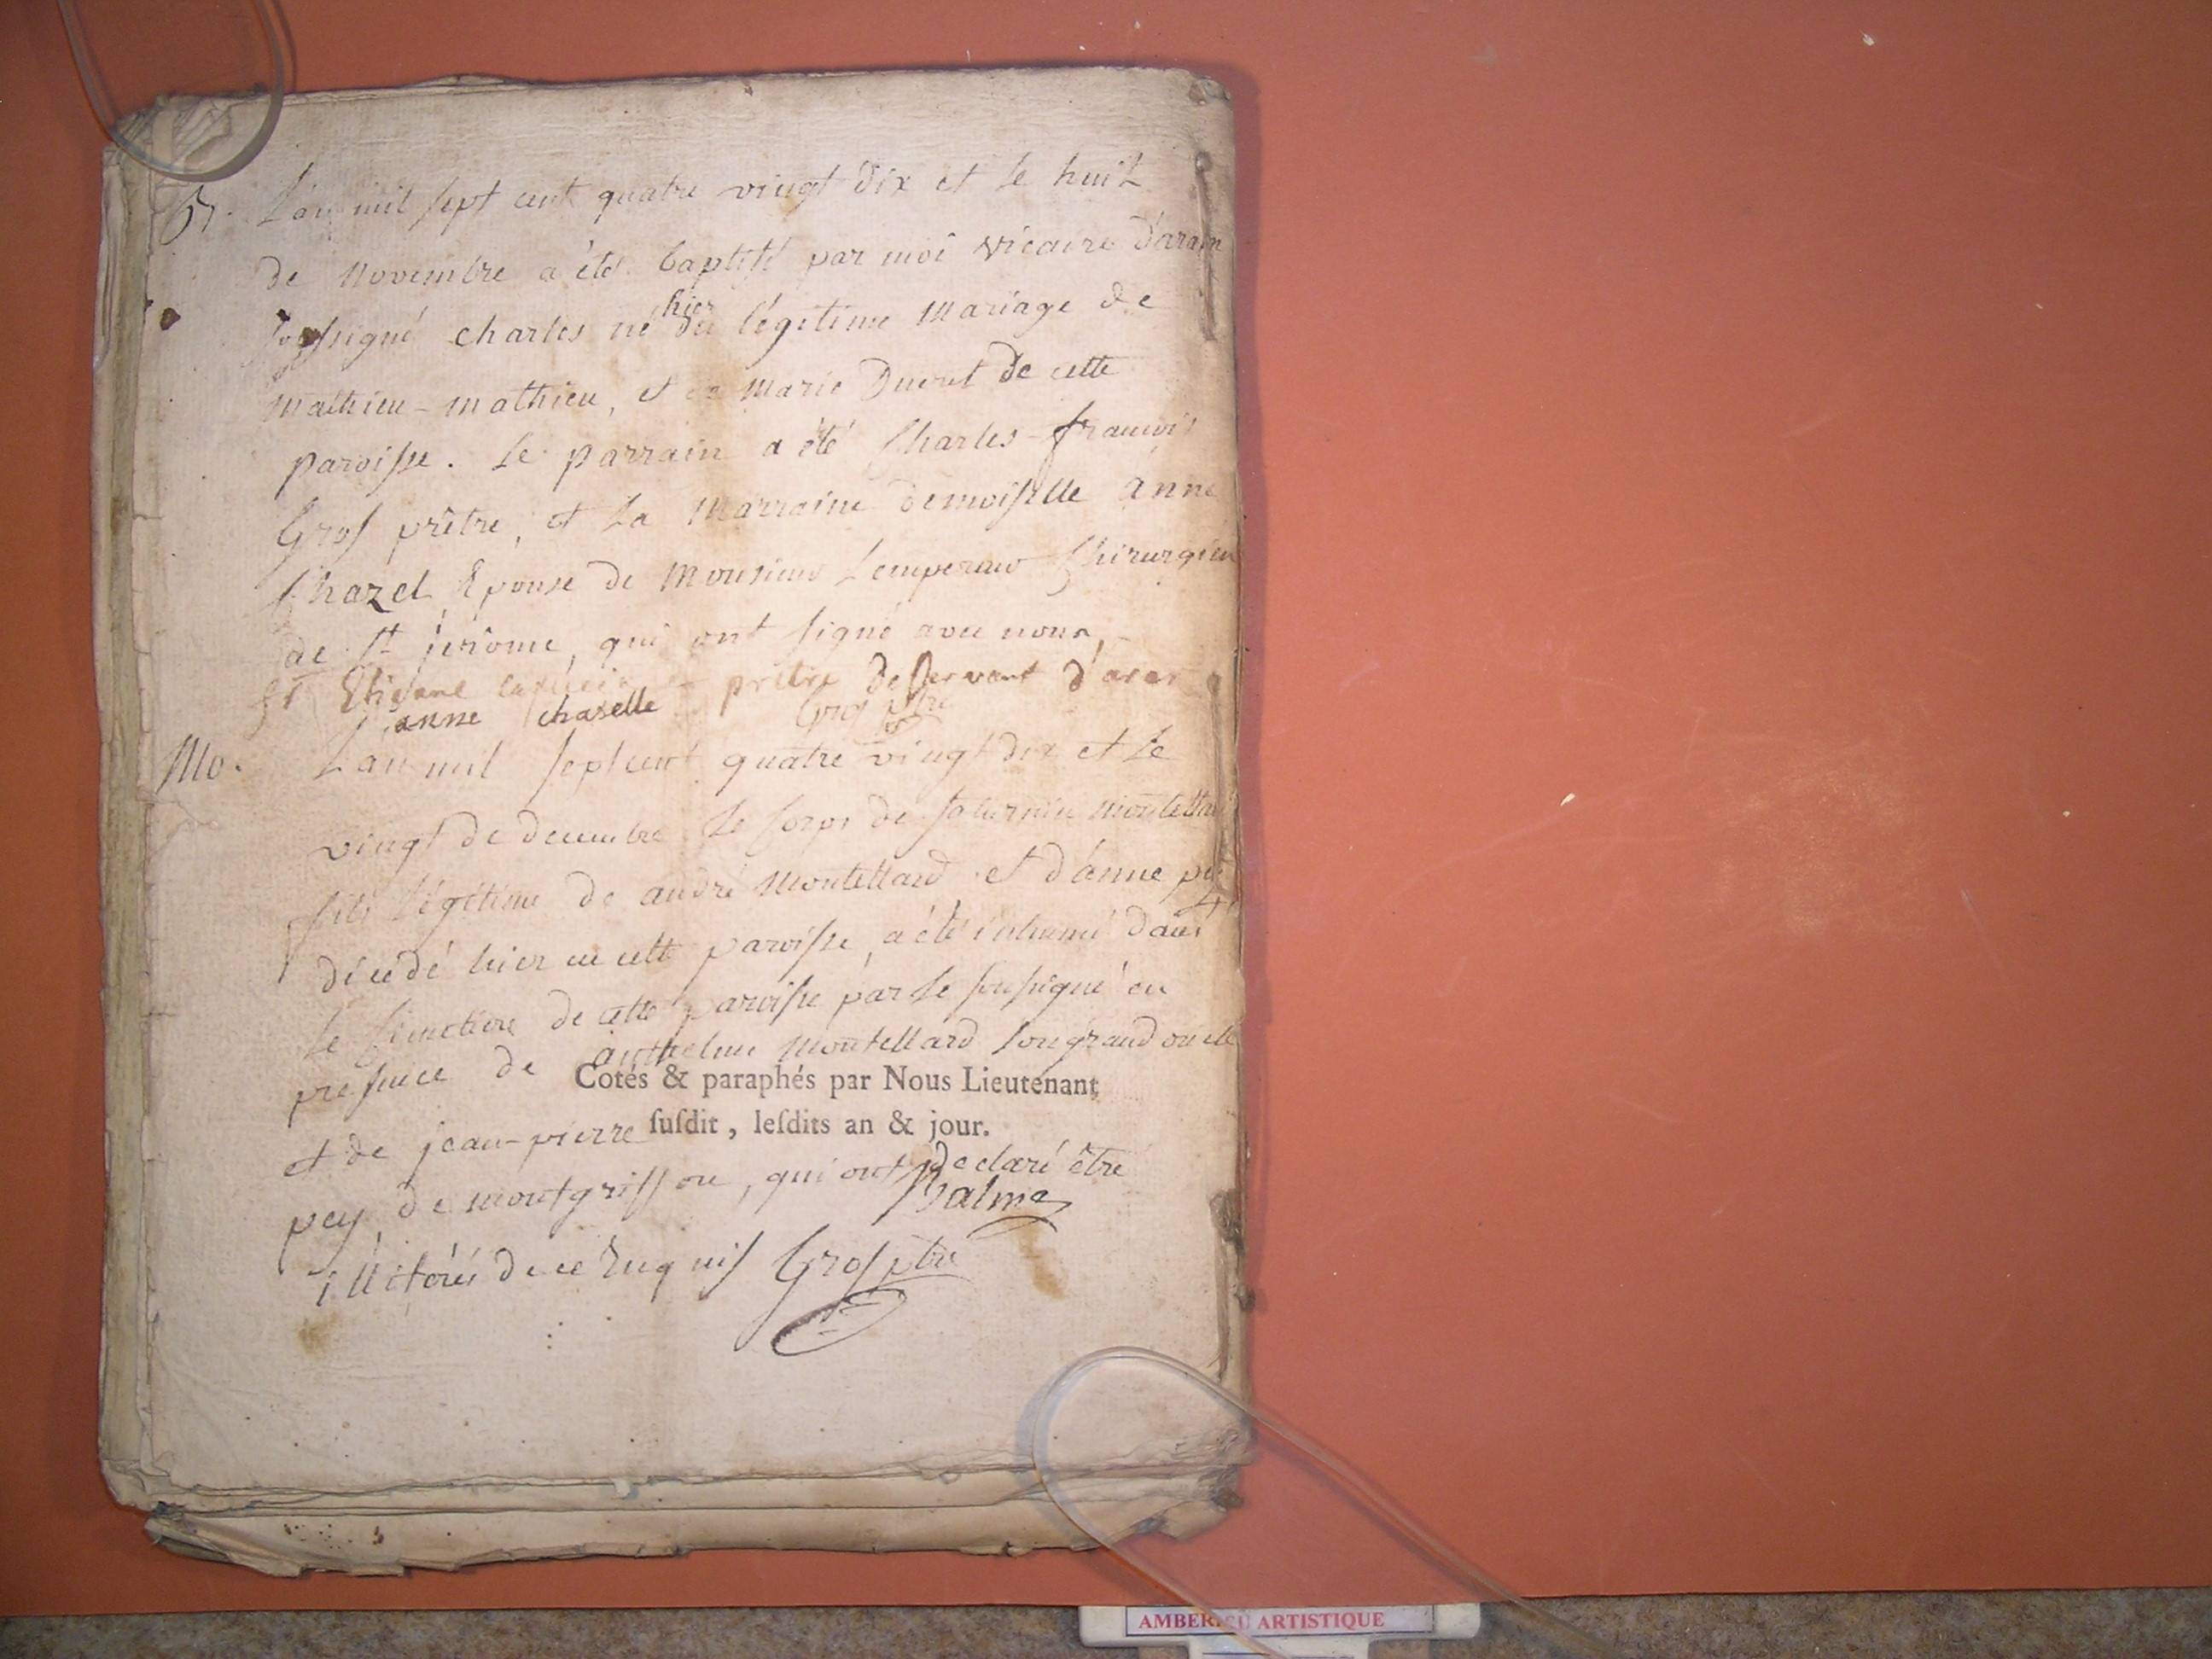 B. L'an mil sept cent quatre vingt dix et le huit
de novembre a été baptisé par moi vicaire d'aran
soussigné charles né hier du légitime mariage de
mathieu-mathieu, et de marie Ducret de cette
paroisse. le parrain a été Charles-françois
Gros prêtre, et la marraine demoiselle anne
Chazel Epouse de monsieur Lempereur Chirurgien
de St jerôme, qui ont signé avec nous,
fr Etienne capucin prêtre desservant d'aran
anne chaselle Gros ptre
Mo. L'an mil sept cent quatre vingt dix et le
vingt de decembre le corps de saturnin montellard
fils légitime de andré montellard et d'anne pey
décédé hier en cette paroisse, a été inhumé dans
le cimetiere de cette paroisse par le soussigné en
presence de anthelme montellard son grand oncle
Cotés & paraphés par Nous Lieutenant
suſdit, leſdits an & jour.
et de jean-pierre
pey, de montgriffon, qui ont declaré être
Balme
illiterés de ce Enquis Gros ptre
AMBERIEU ARTISTIQUE